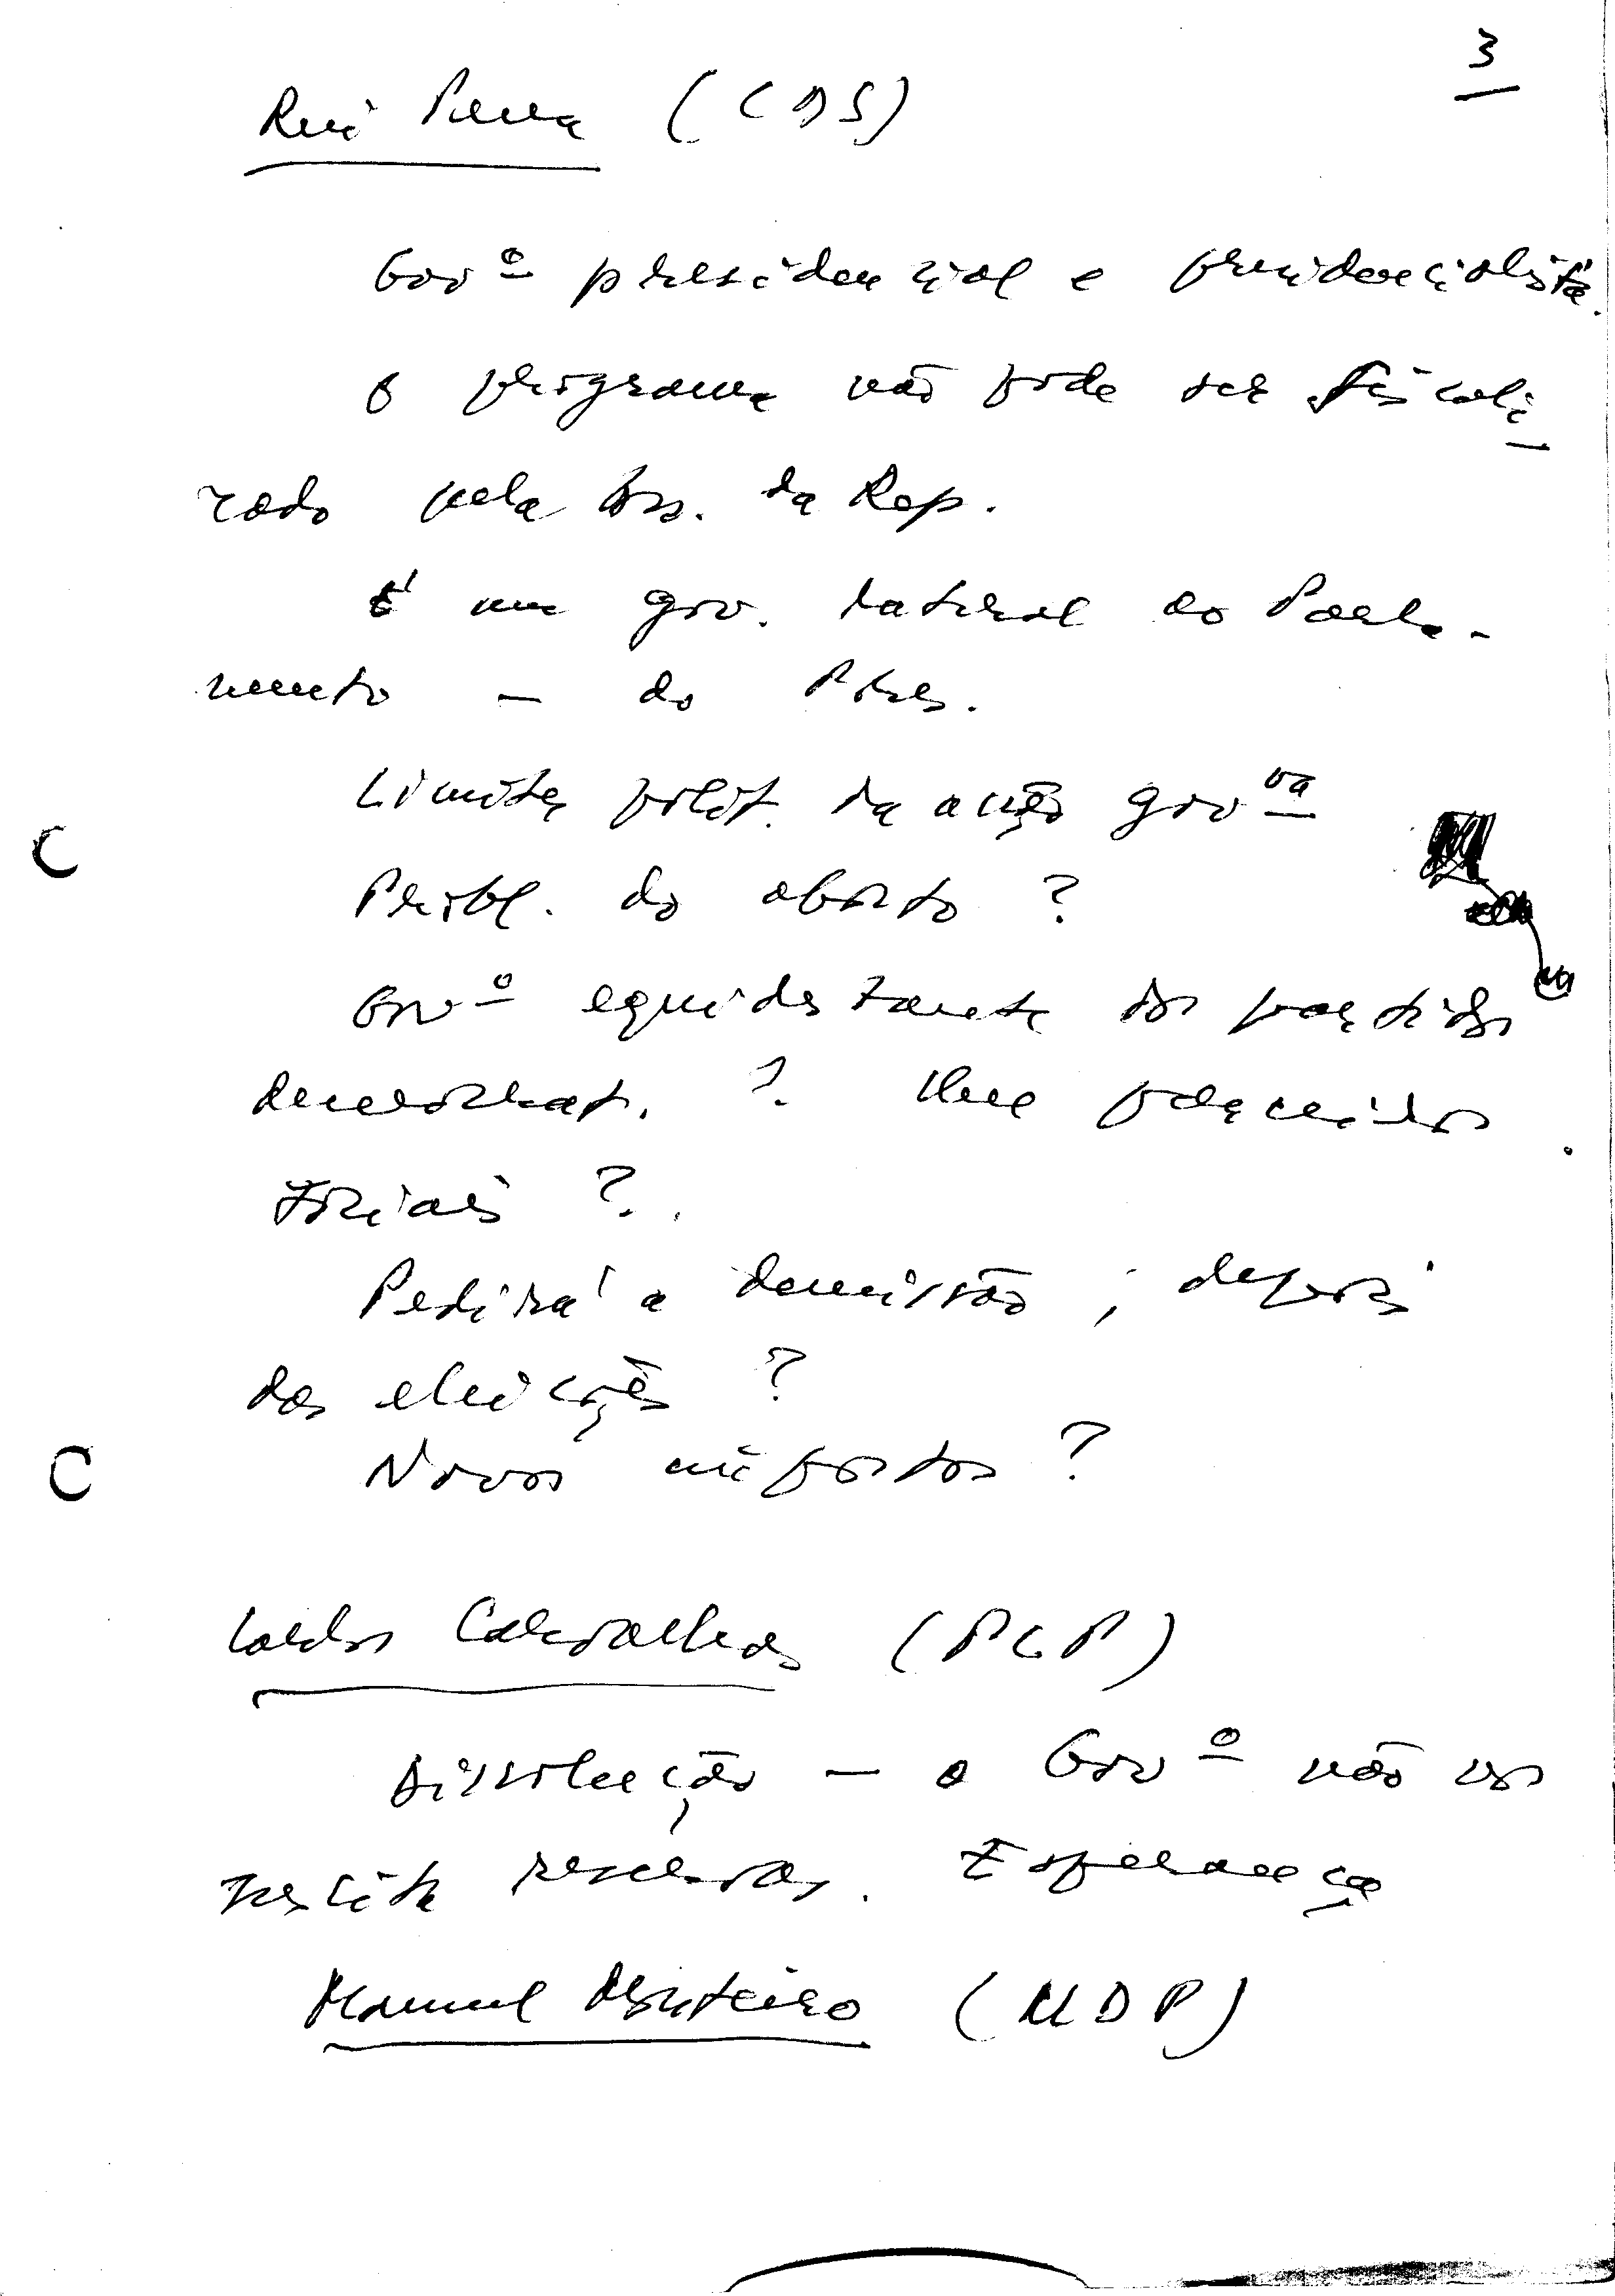 3
Rui Pena (CDS)
Govº presidencial e presidencialista.
O programa não pode ser fiscali-
zado pela Ass. da Rep.
É um gov. lateral ao Parla-
mento - do Pres.
Limites polít. da acção govva
Probl. do aborto?
Govº equidistante dos partidos
democrat.?
?
Pedirá a demissão, depois
das eleições?
Novos impostos?
Carlos Carvalhas (PCP)
Dissolução - o Govº não vos
reservas. Esperança
Manuel Monteiro (MDP)